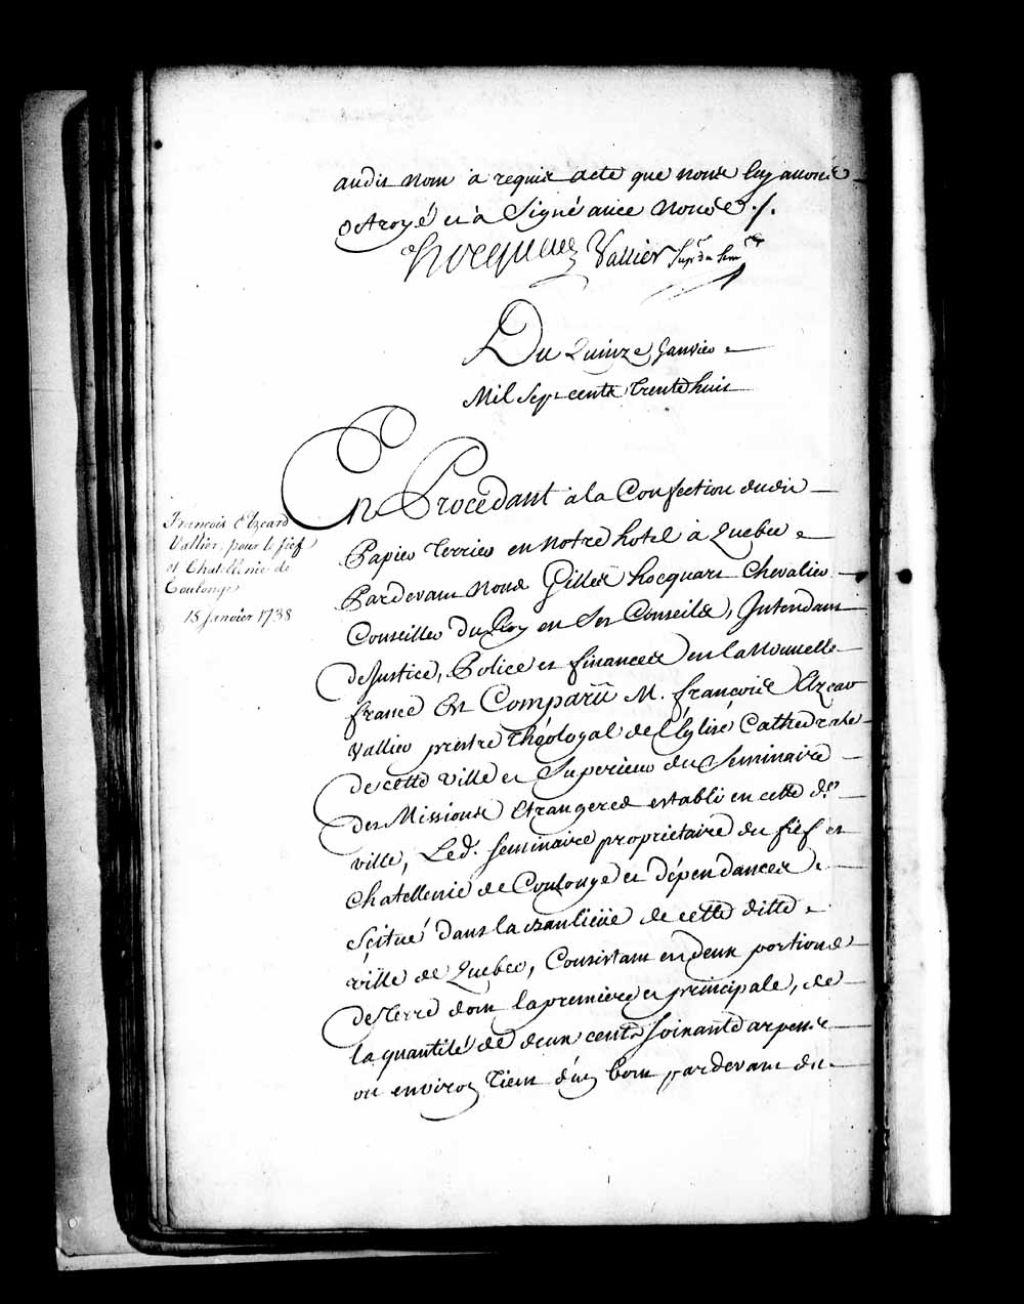 audit nom a requis acte que nous luy avons
octroyé et a Signé avec nous ./.
hocquart Vallier Supr du Semre
Du Quinze Janvier
Mil Sept cents Trente huit
En Procédant a la Confection dudit
Papier Terrier en notre hotel à Quebec
Pardevant nous Gilles hocquart Chevalier
Conseiller Du Roy en Ses Conseils, Intendant
de Justice, Police et finances en la Nouvelle
france Est Comparu M. françois Elzear
Vallier prestre Théologal de l'Eglise Cathedrale
de cette ville et Superieur du Seminaire
des Missions Etrangeres establi en cette de
ville, Led. Seminaire proprietaire du fief et
chatellenie de Coulonge et dépendances
scitué dans la banlieüe de cette ditte
ville de Quebec, Consistant en deux portions
de Terre dont la premiere et principale, de
la quantité de deux cents soixante arpents
ou environ Tient d'un bout pardevant du
François Elzeard
Vallier, pour le fief
et Chatellenie de
Coulonge
15 Janvier 1738